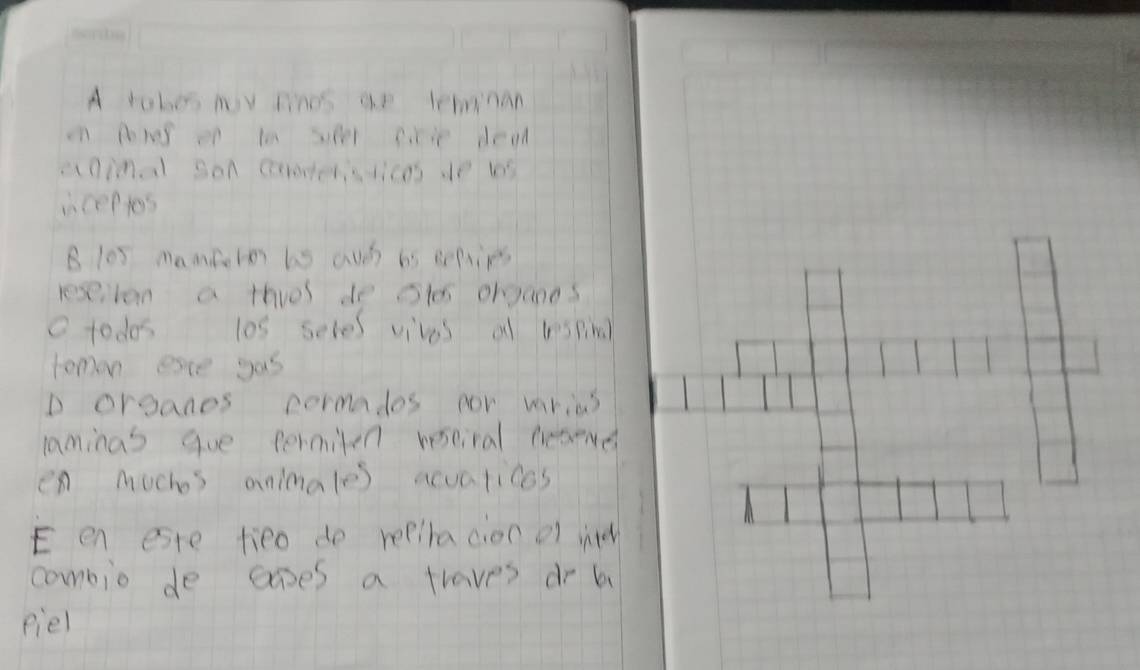 A tubos muy finos que terminan
en Pores en la super ficie deun
animal son caracteristicos de los
inceptos
B los mamiferon las aves los reptiles
reseiran a través de estos organos
C todos los seres vivos al respirar
toman este gas
D organos formados por varias
laminas que permiten
en muchos animales acuaticos
E en este tipo de repiracion el inter
cambio de gases a traves de la
piel